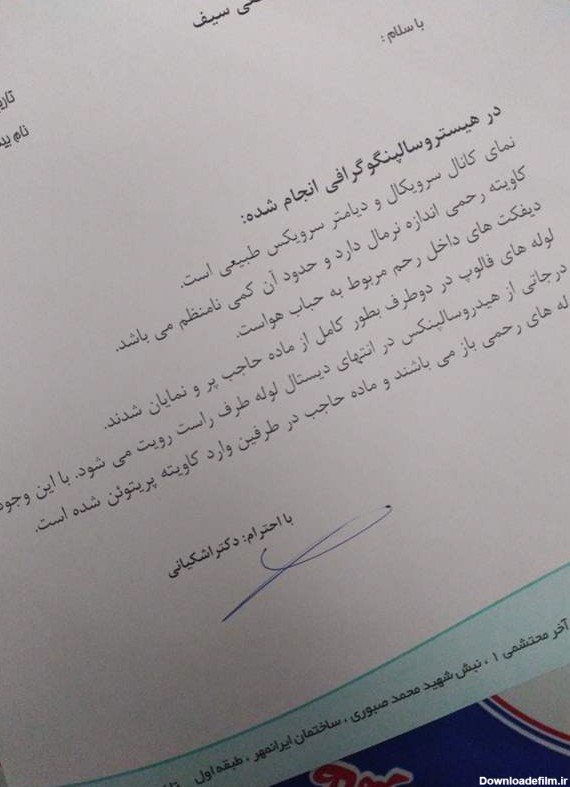 سیف
با سلام :
در هیستروسالپنگوگرافی انجام شده:
نمای کانال سرویکال و دیامتر سرویکس طبیعی است.
کاویته رحمی اندازه نرمال دارد و حدود آن کمی نامنظم می باشد.
دیفکت های داخل رحم مربوط به حباب هواست.
لوله های فالوپ در دوطرف بطور کامل از ماده حاجب پر و نمایان شدند.
درجاتی از هیدروسالپنکس در انتهای دیستال لوله طرف راست رویت می شود. با این وجود
له های رحمی باز می باشند و ماده حاجب در طرفین وارد کاویته پریتوئن شده است.
با احترام: دکتر اشکیانی
آخر محتشمی ۱ ، نبش شهید محمد صبوری ، ساختمان ایرانمهر ، طبقه اول
Downloadefilm.ir